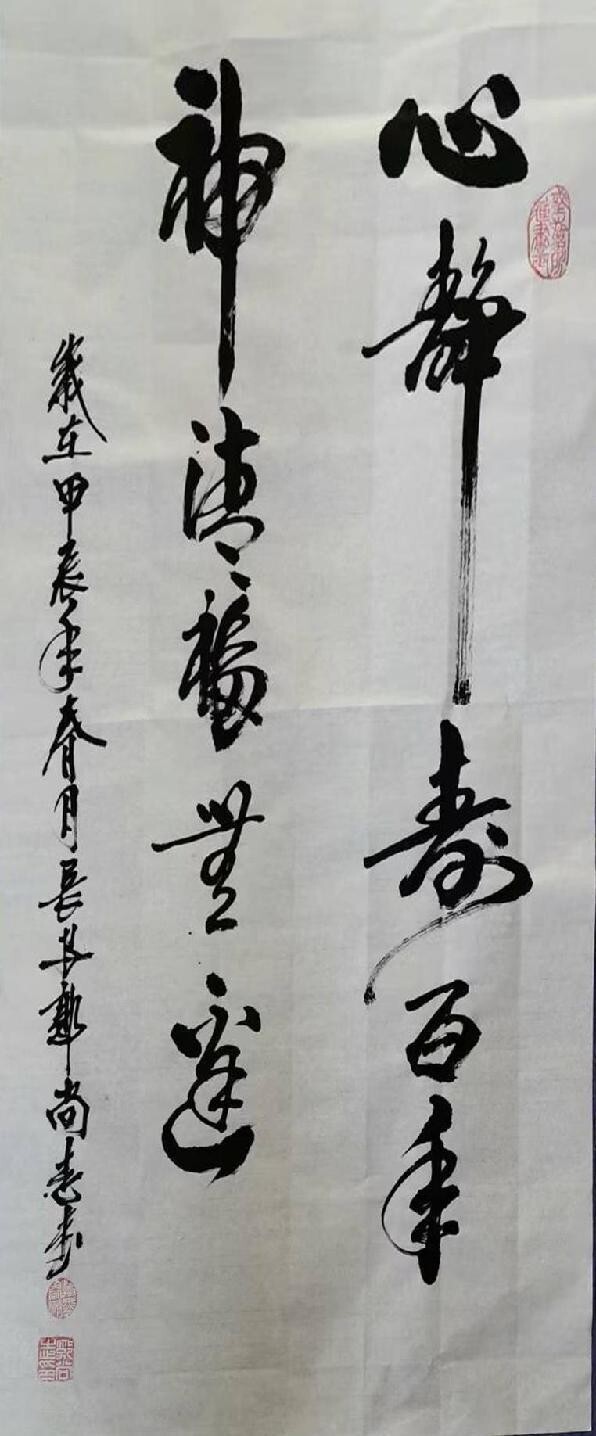 心静寿百年
神清福无边
岁在甲辰年春月长安郭尚志书